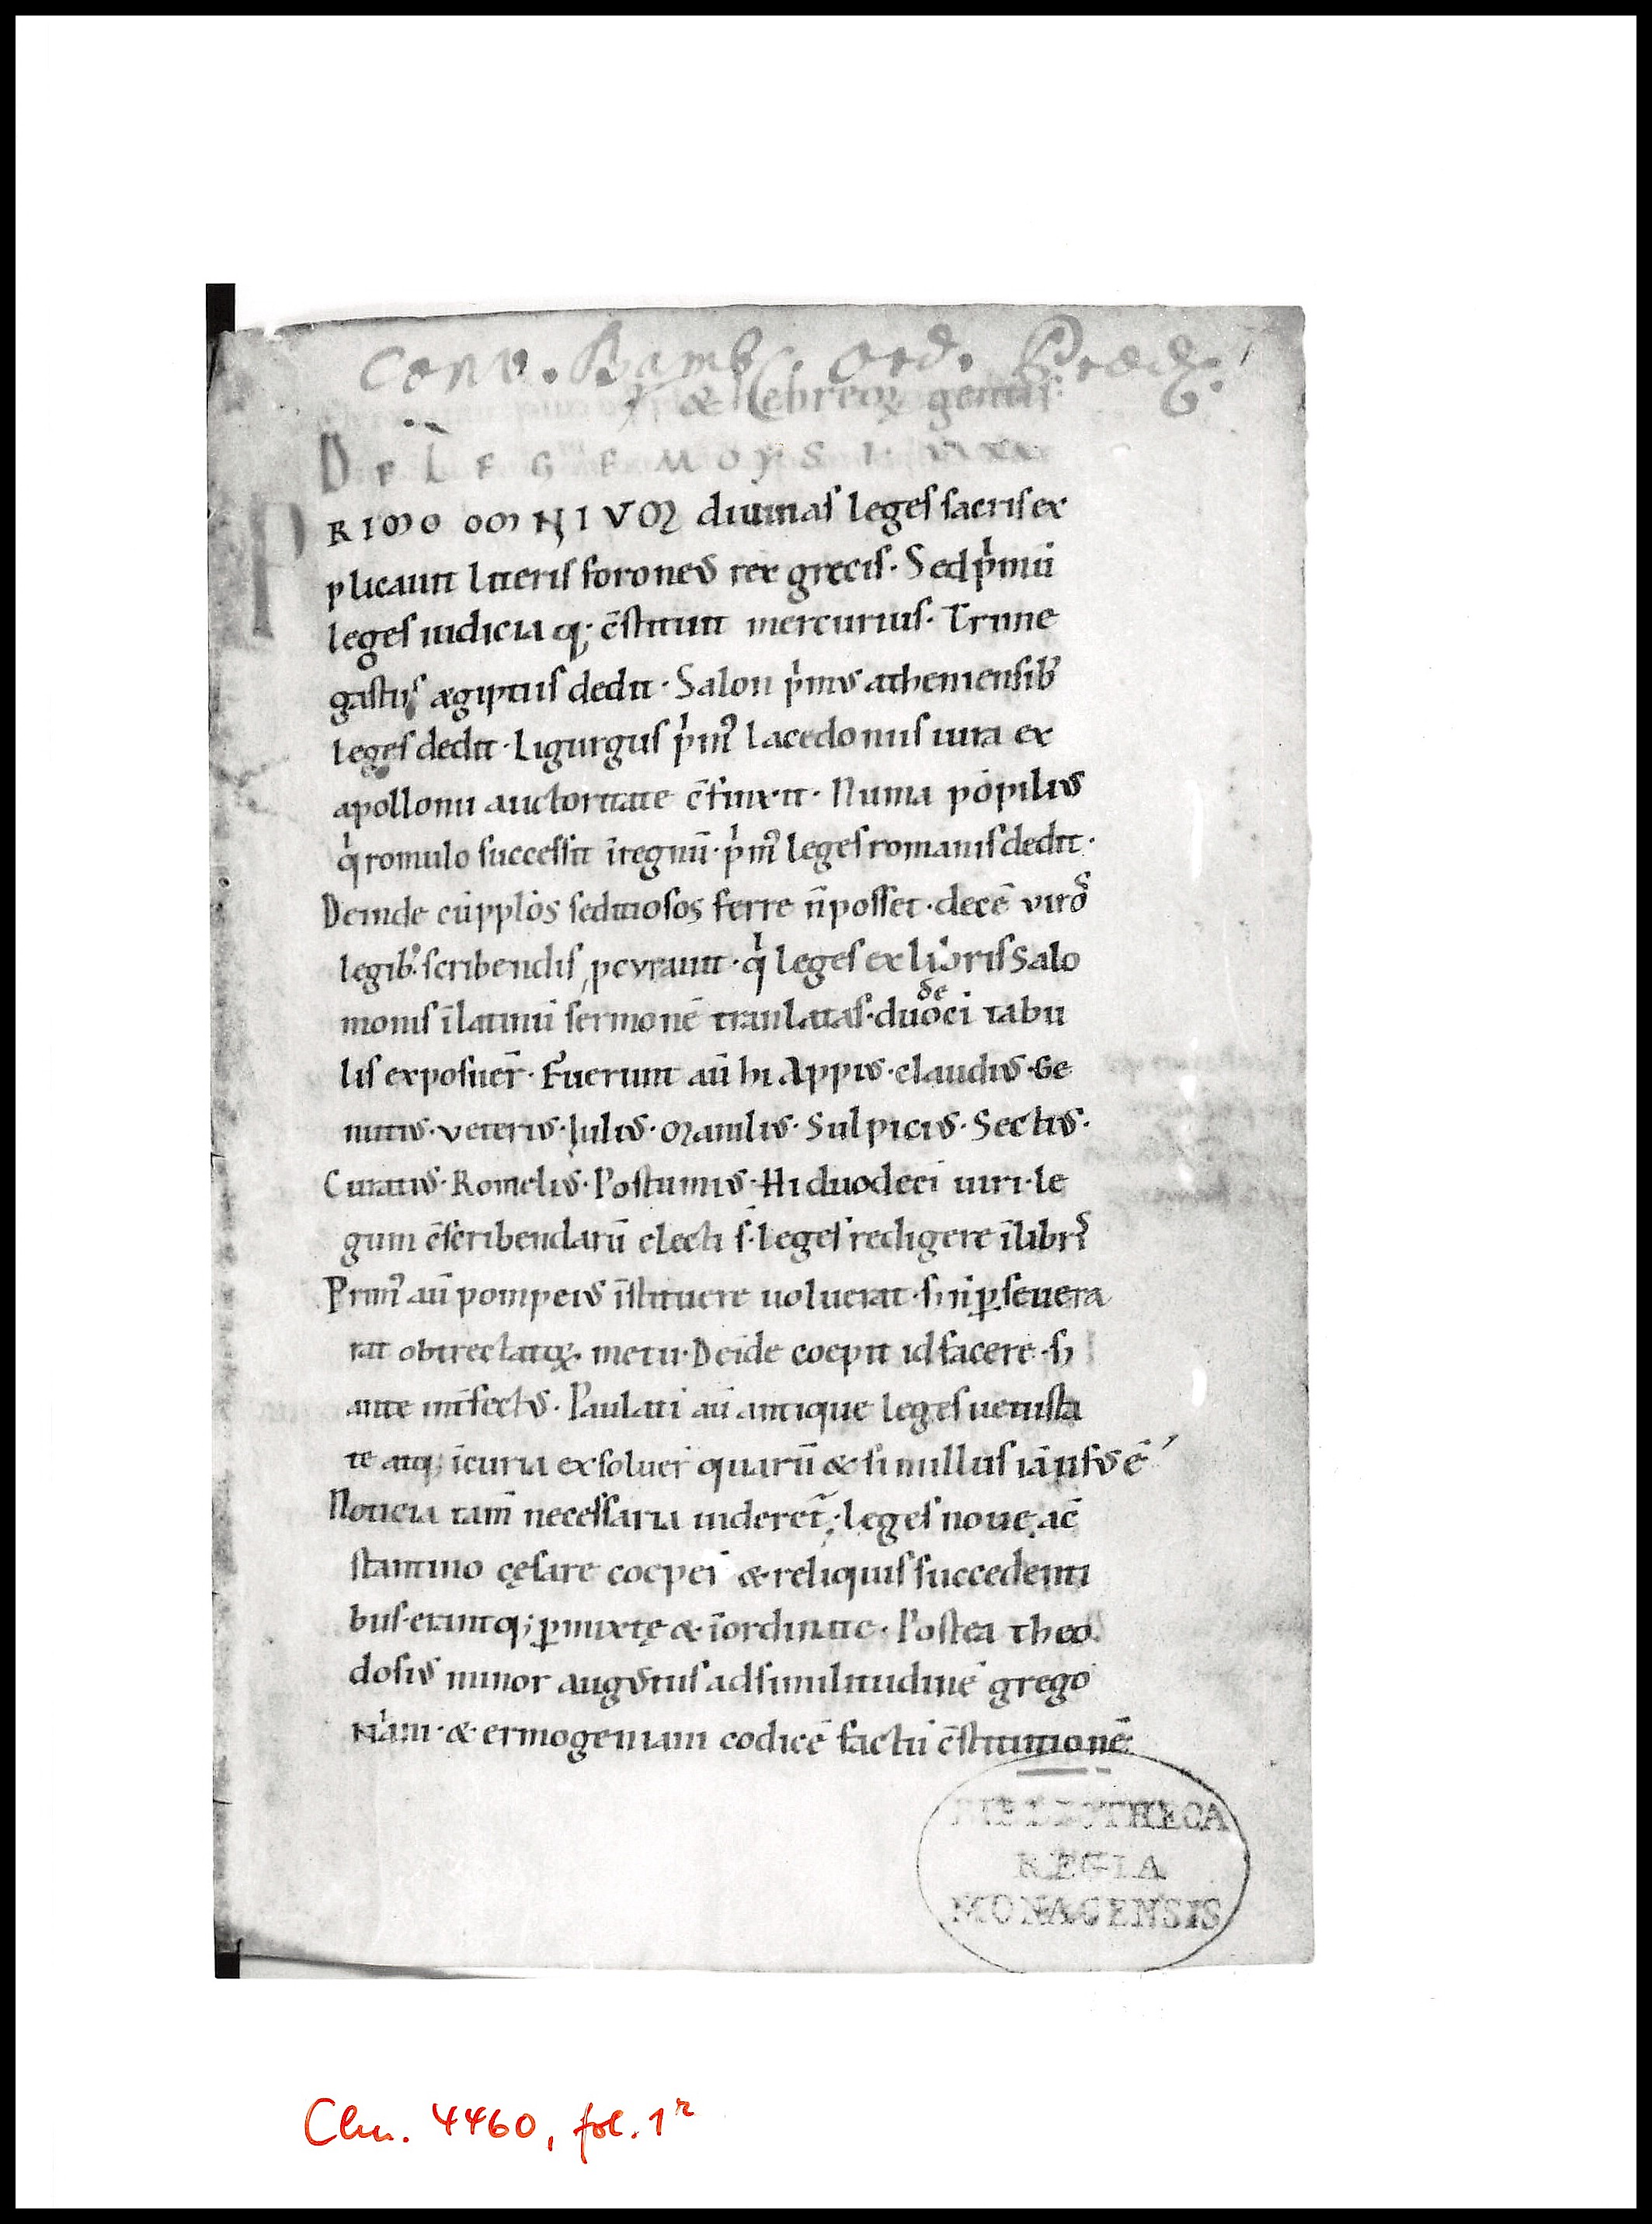 Conv. Bamb. Ord. Praed.
& hebreoꝝ gentis:
DE LEGE MOYSI
PRIMO OMNIVOꝝ diuinas leges sacris ex
plicauit litteris foroneus rex grecis. Sed p̍mū
leges iudicia q; c̄stituit mercurius. Trime
gastus ægiptiis dedit. Salon p̍mus atheniensib'
leges dedit. Ligurgus p̍m᾿ lacedoniis iura ex
apollonii auctoritate c̄finxit. Numa pópilius
q̍ romulo successit īregnū. p̍m᾿ leges romanis dedit.
Deinde cū pp̄lōs seditiosos ferre n̄ posset. decē viros
legib'. scribendis, pcvrauit. q̍ leges ex libris Salo
monis īlatinū sermonē tranlatas. duodeci tabu
lis exposuer̄. Fuerunt aū hi Appius. claudius. Ge
nutius. veterius. Julius. Manilius. Sulpicius. Sectius.
Curatius. Romelius. Postumius. Hi duodeci uiri. le
gum c̄scribendarū electi s̄. leges redigere īlibris
Prim᾿ aū pompeius īstituere uoluerat. sꝫ n̄ ꝑseuera
rat obtrectatoꝝ metu. Deīde coepit id facere. sꝫ
ante int̄fectus. Paulati aū antique leges uetusta
te atq; īcuria exsoluer̄ quarū & si nullus iā usus ē
Noticia tam̄ necessaria uideret̄. leges noue, ac̄
stantino cęsare coeper̄ & reliquis succedenti
bus. erantq; ꝑmixtę & īordinate. Postea theo
dosius minor augustus ad similitudinē grego
riani. & ermogeniani codicē factū c̄stitutionē.
BIBLIOTHECA
REGIA
MONACENSIS
Clm. 4460, fol. 1ʳ